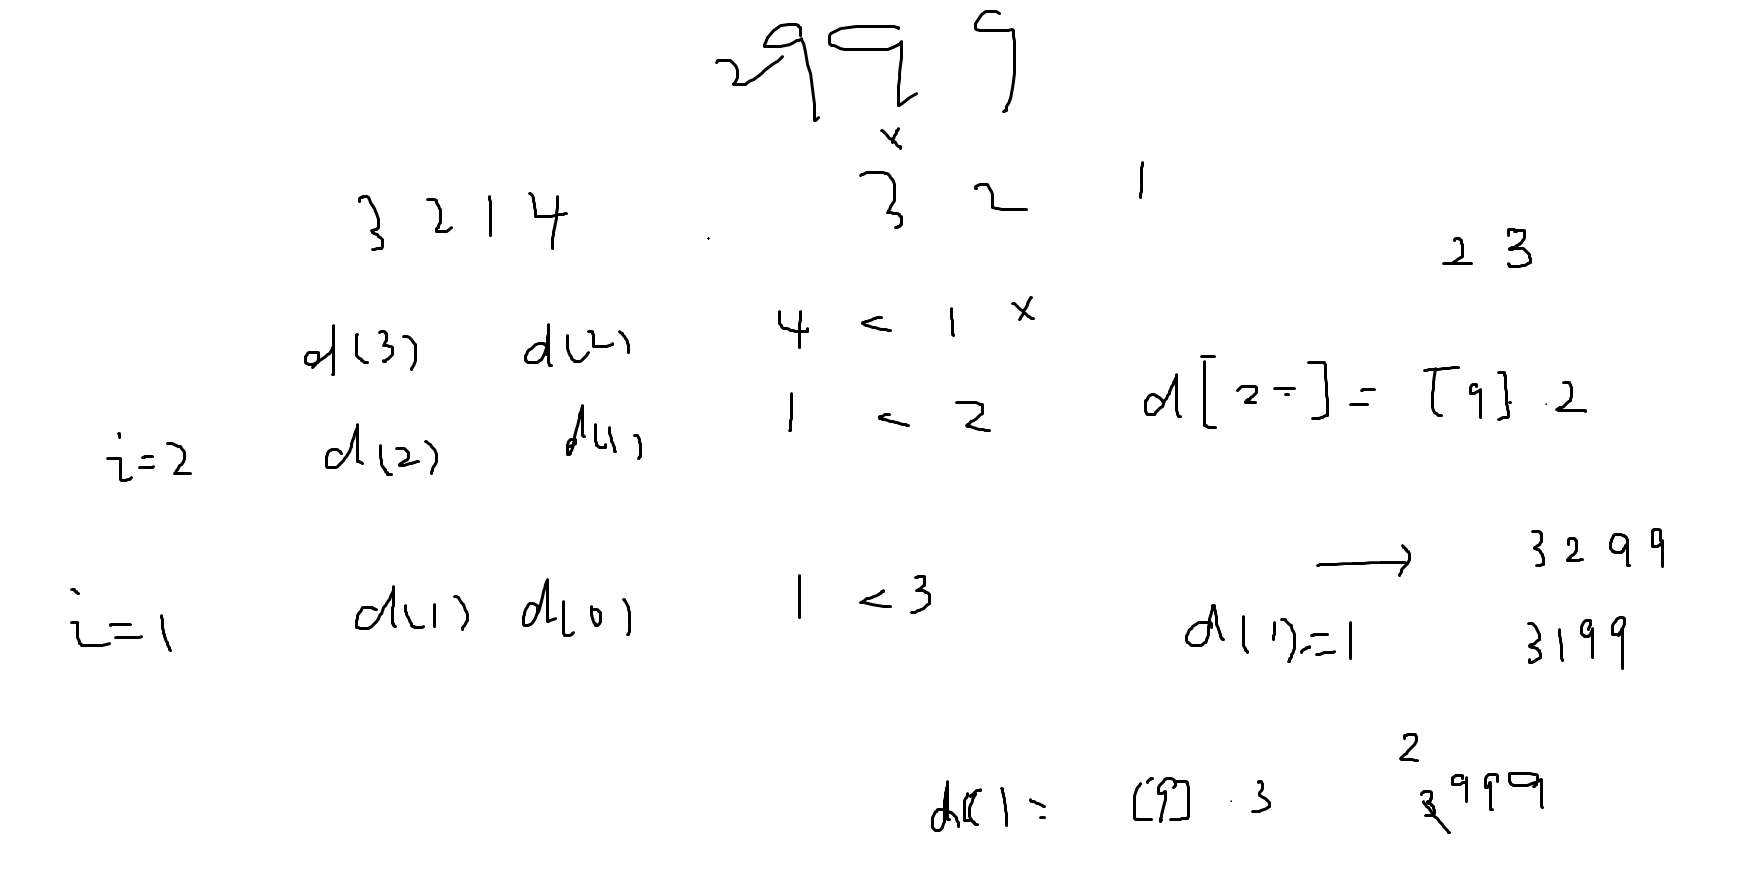 2999
x
3 2 1 4
3 2 1
2 3
d(3) d(2) 4 < 1 x
i=2 d(2) d(1) 1 < 2 d[2=]= [9] . 2
→ 3299
i=1 d(1) d(0) 1 < 3 d(1)=1 3199
2
= [9] . 3 999